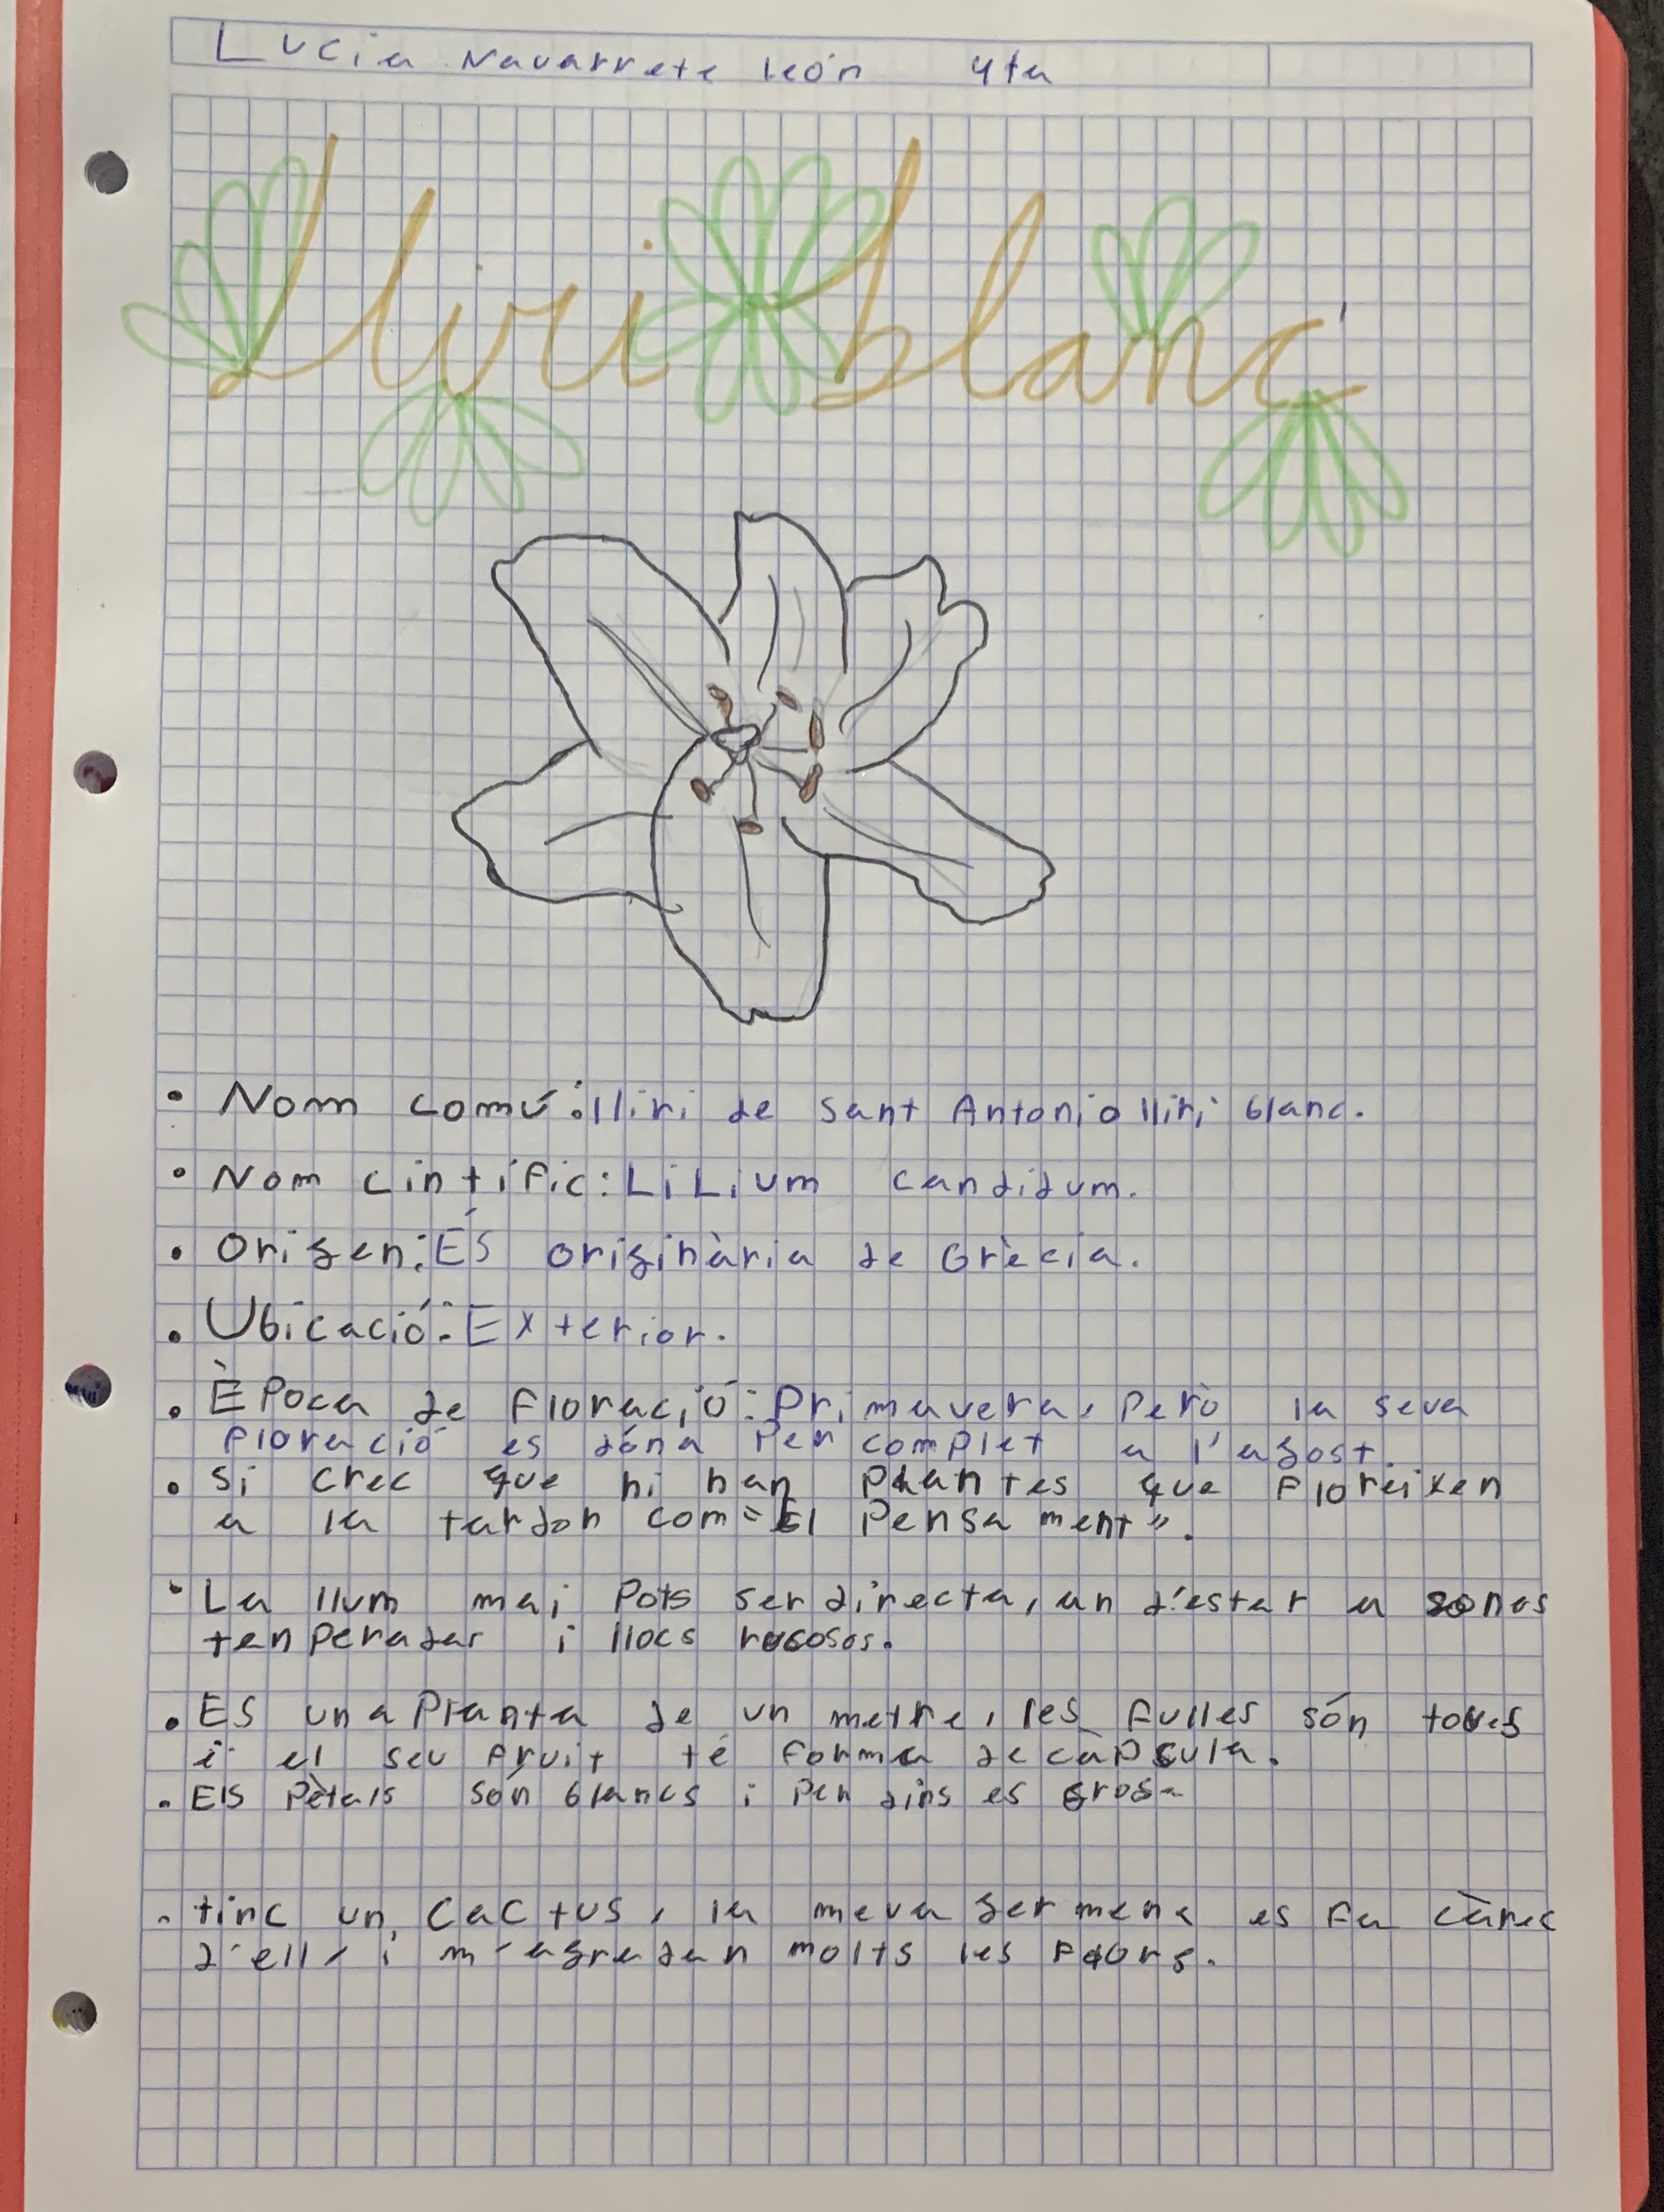 Lucia Navarrete León 4ta
Lliri blanc
• Nom comú: lliri de sant Antoni o lliri blanc.
• Nom cintífic: LiLium candidum.
• Origen: És originària de Grècia.
• Ubicació: Exterior.
• Època de floració: Primavera, però la seva
floració es dóna per complet a l'agost.
• Si crec que hi han plantes que floreixen
a la tardon com "El Pensament".
• La llum mai pots ser directa, an d'estar a sones
tenperadas i llocs rocosos.
• ES una planta de un metre, les fulles són toves
i el seu fruit té forma de càpsula.
• Els pètals són blancs i per dins es grosa
• tinc un cactus, la meva germena es fa càrec
d'ell, i m'agradan molts les flors.